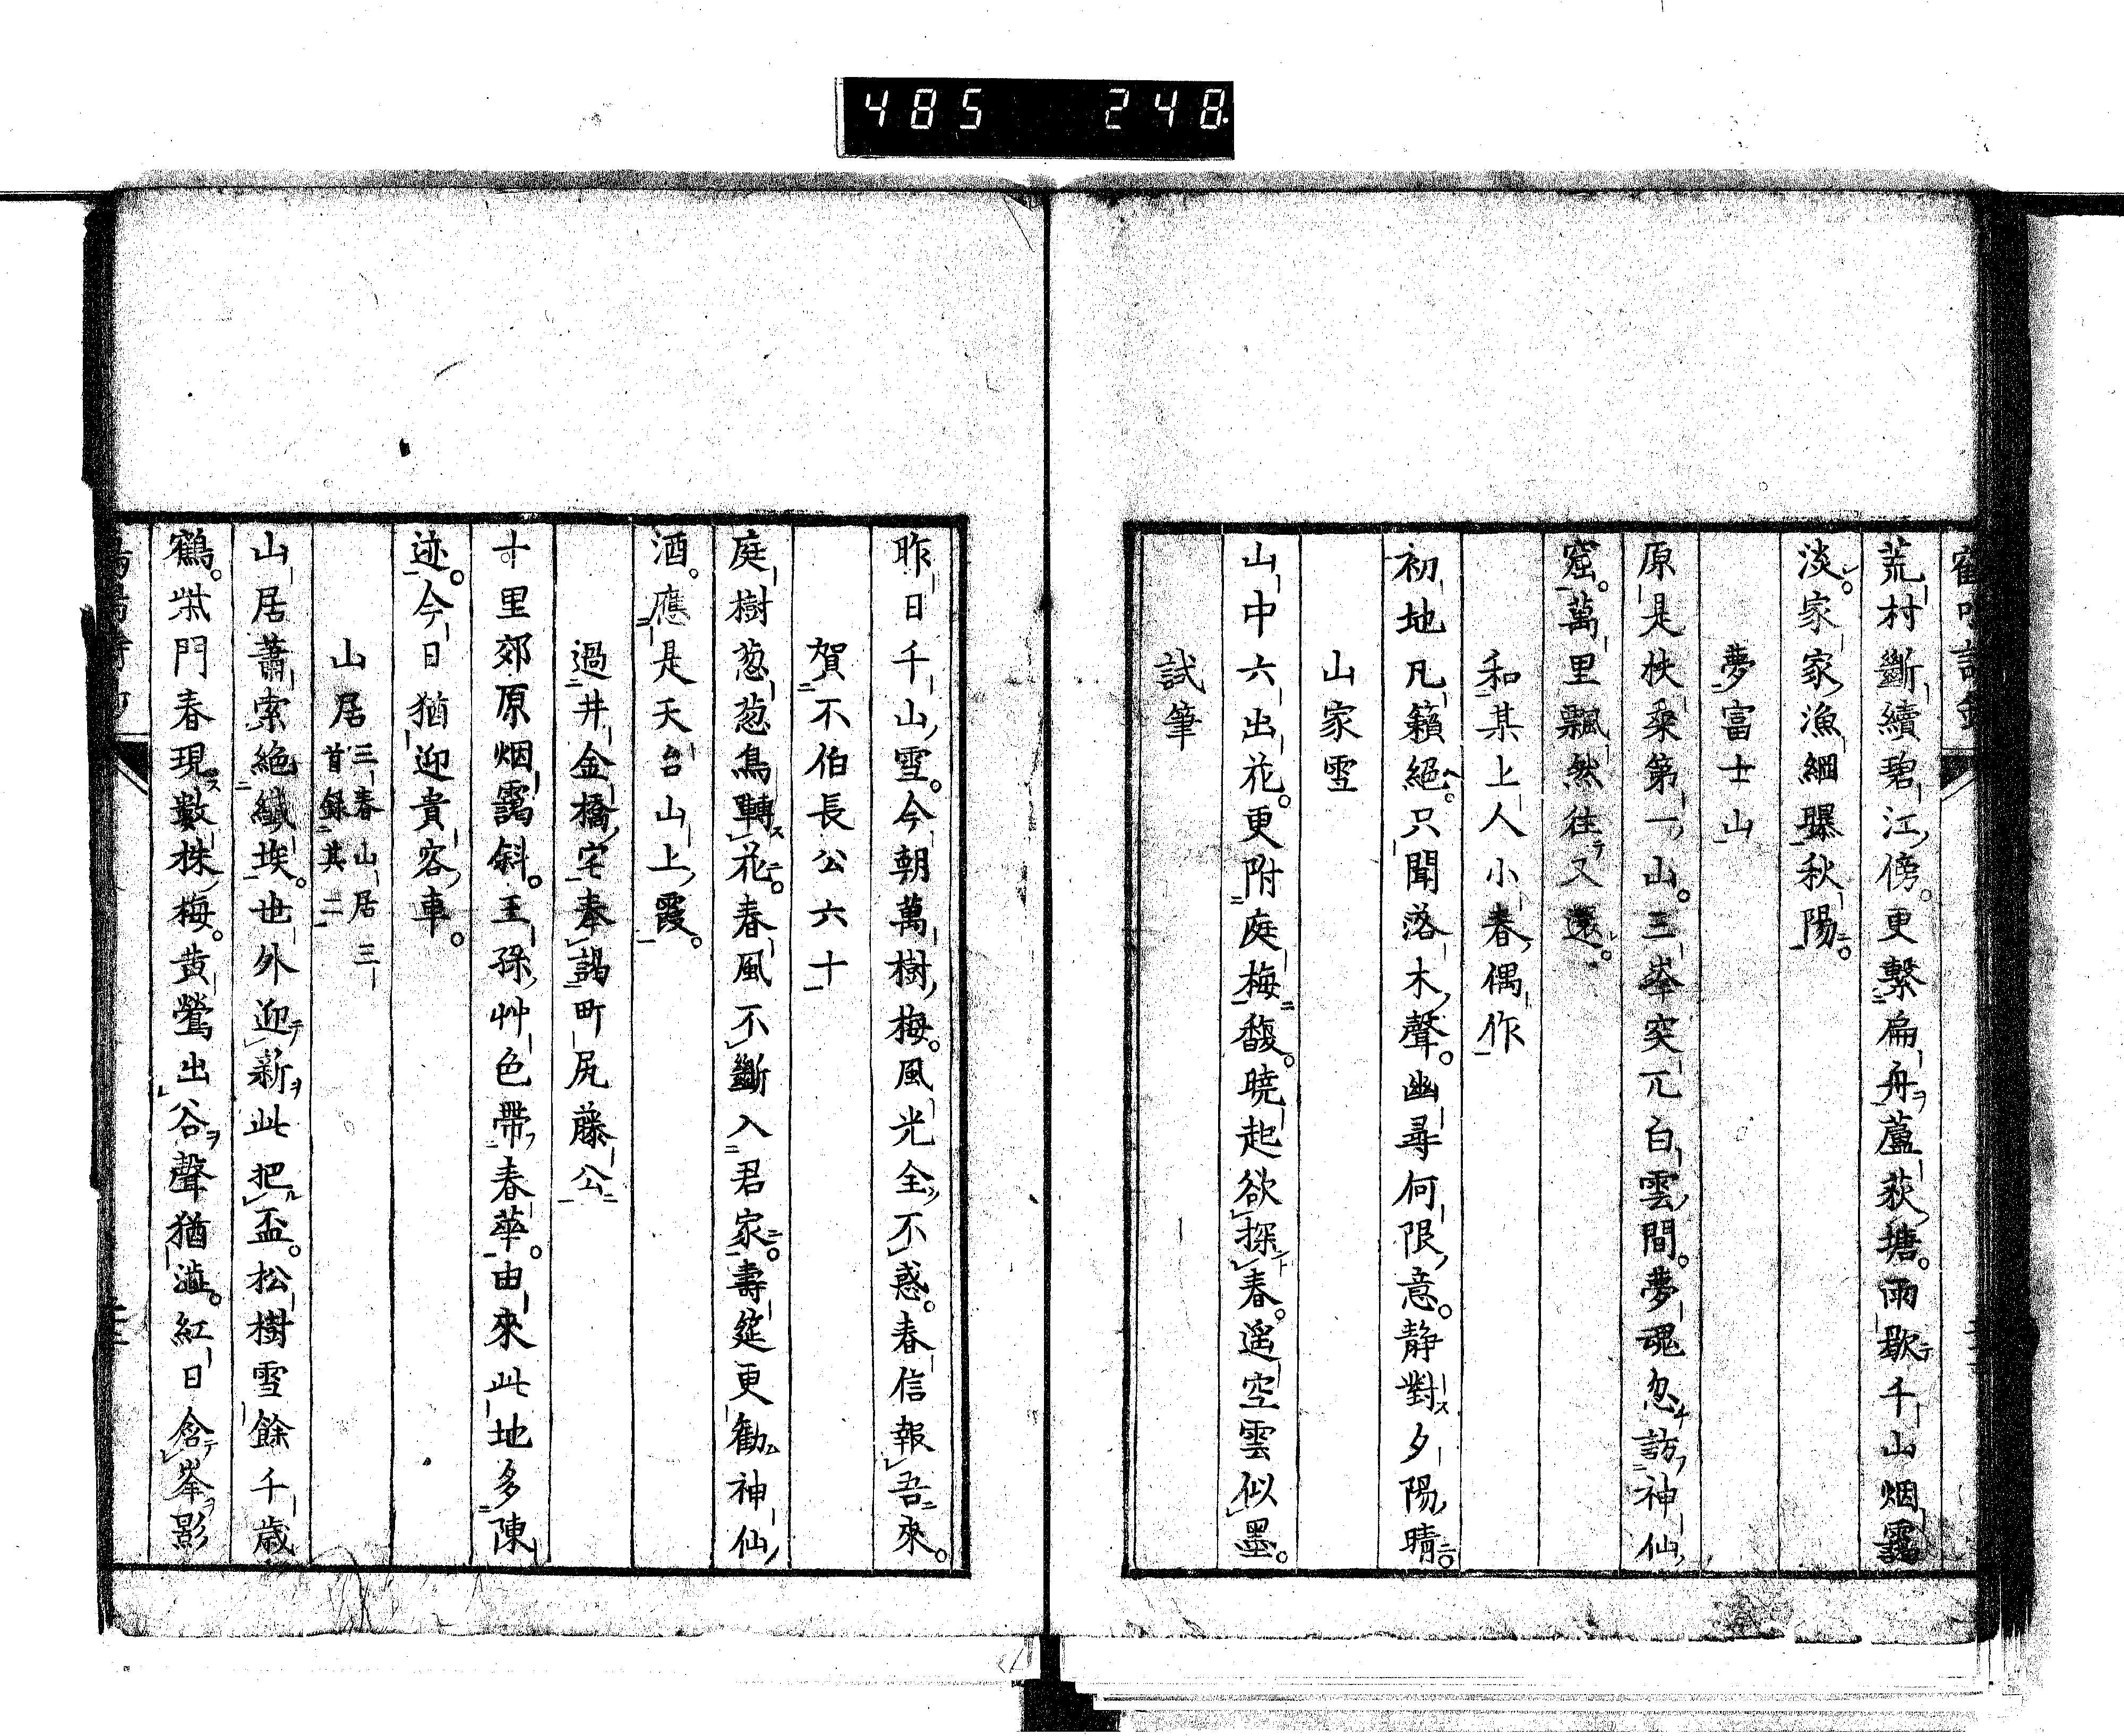 485 248.
荒村斷續碧江傍。更繫扁舟蘆荻塘。雨歇千山烟靄
淡。家家漁網曝秋陽。
夢富士山
原是扶桒第一山。三峯突兀白雲間。夢魂忽訪神仙
窟。萬里飄然往又還。
和某上人小春偶作
初地凡籟絕。只聞落木聲。幽尋何限意。静對夕陽晴。
山家雪
山中六出花。更附庭梅馥。曉起欲探春。遥空雲似墨。
試筆
昨日千山雪。今朝萬樹梅。風光全不惑。春信報吾來。
賀不伯長公六十
庭樹葱葱鳥轉花。春風不斷入君家。壽筵更勸神仙
酒。應是天台山上霞。
過井金橋宅奉謁町尻藤公
十里郊原烟靄斜。王孫艸色帶春華。由來此地多陳
迹。今日猶迎貴客車。
山居三春山居三首錄其二
山居蕭索絕纖埃。世外迎新此把盃。松樹雪餘千歳
鶴。柴門春現數株梅。黄鶯出谷聲猶澁。紅日含峯影